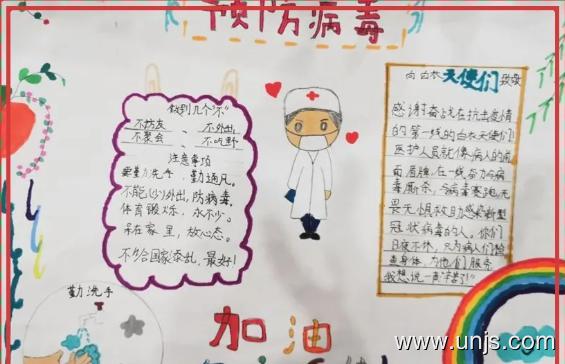 预防病毒
做到几个"不"
不访友、不外出
不聚会、不吃野
注意事项
要勤洗手，勤通风。
不能(少)外出，防病毒，
体育锻炼，永不少。
呆在家里，放心态。
不给国家添乱，最好！
向白衣天使们致敬
感谢奋战在抗击疫情
的第一线的白衣天使们！
医护人员就像病人的
在一线奋力与病
毒厮杀，与病毒赛跑，无
畏无惧救助感染新型
冠状病毒的人。你们
日夜不休，只为病人们检
查身体，为他们服务
我想说一声"辛苦了！"
勤洗手
加油
www.unjs.com